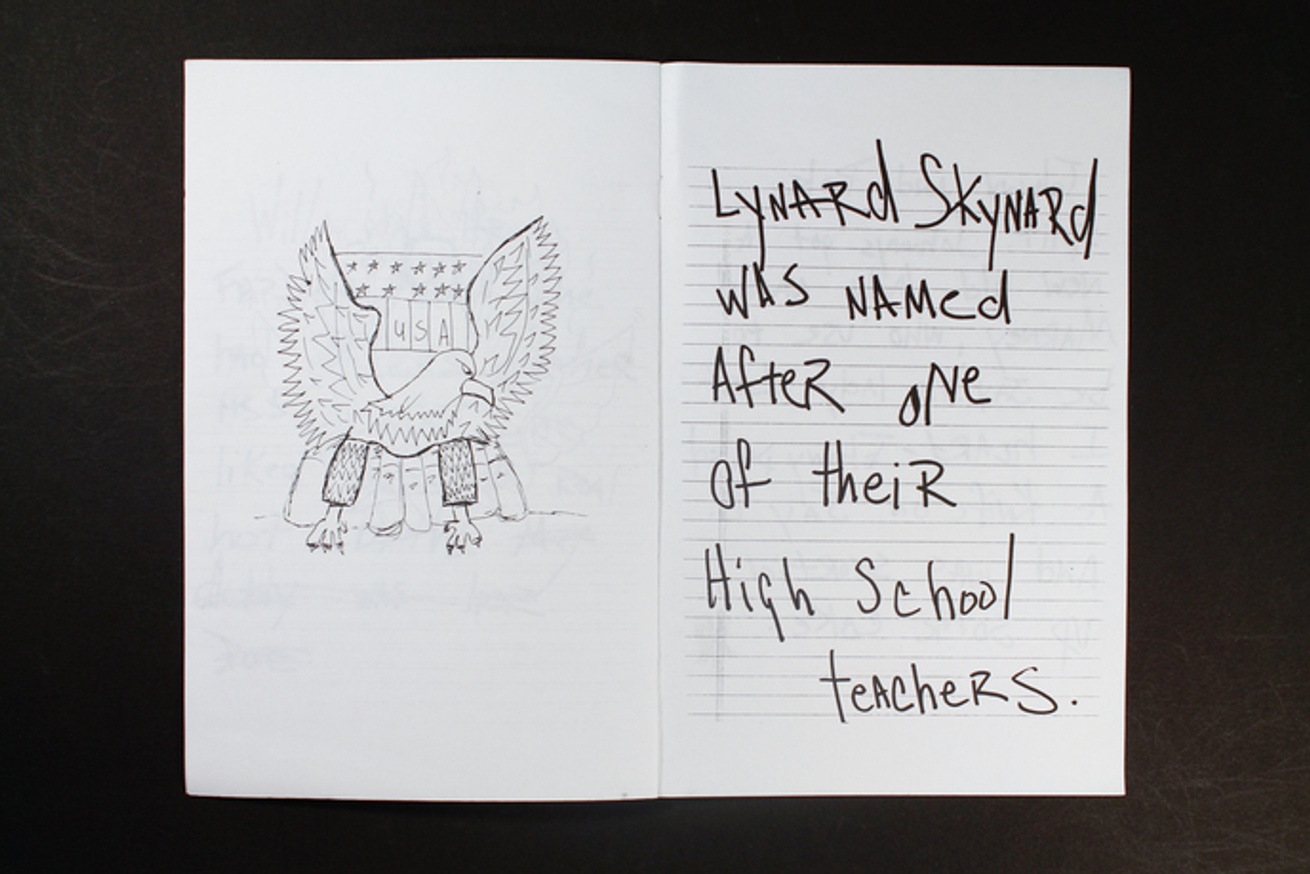 USA
Lynard Skynard
was named
After one
of their
High School
teachers.